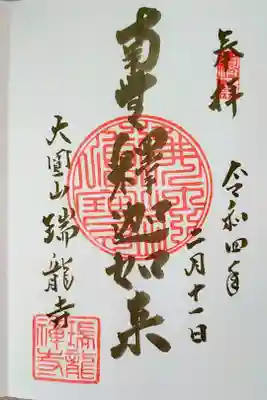 奉拝
令和四年
二月十一日
南無釋迦如来
大圓山
瑞龍寺
瑞龍
禪寺